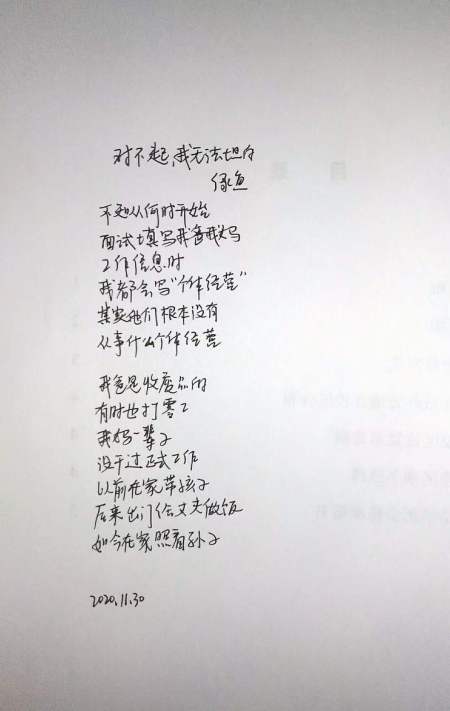 对不起,我无法坦白
绿鱼
不知从何时开始
面试填写我爸我妈
工作信息时
我都会写“个体经营”
其实他们根本没有
从事什么个体经营
我爸是收废品的
有时也打零工
我妈一辈子
没干过正式工作
以前在家带孩子
后来出门给丈夫做饭
如今在家照看孙子
2020.11.30